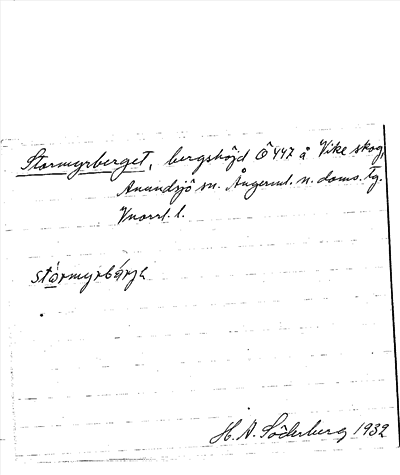 Stormyrberget, bergshöjd Ö 447 å Vike skog,
Anundsjö sn. Ångerml. n. doms. tg.
Vnorrl. l.
H. A. Söderberg 1932